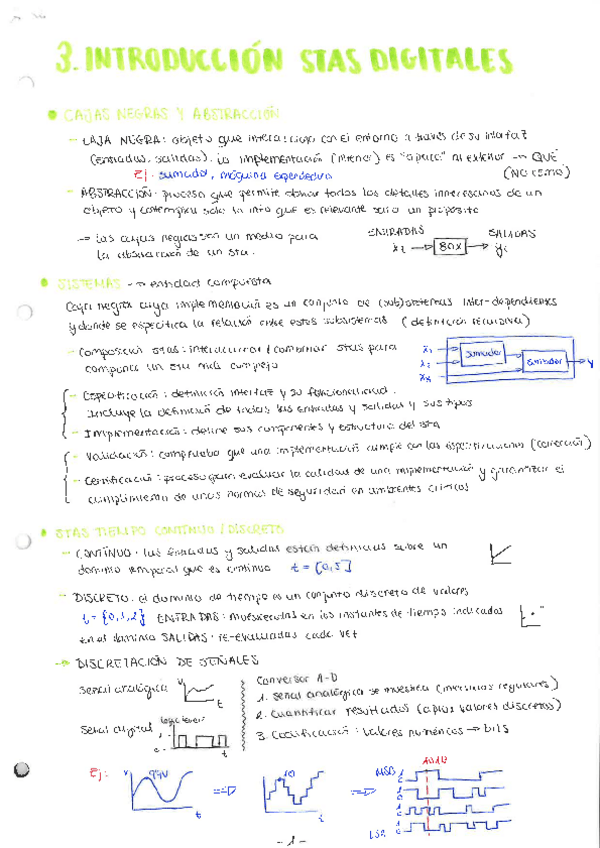 3. INTRODUCCIÓN STAS DIGITALES
• CAJAS NEGRAS Y ABSTRACCIÓN
- CAJA NEGRA: objeto que interacciona con el entorno a través de su interfaz
(entradas, salidas). La implementación (interior) es "opaca" al exterior → QUÉ
Ej. sumador, máquina expendedora (NO CÓMO)
- ABSTRACCIÓN: proceso que permite obviar todos los detalles innecesarios de un
objeto y contemplar solo la info que es relevante para un propósito
→ Las cajas negras son un medio para
la abstracción de un sta.
ENTRADAS SALIDAS
BOX
• SISTEMAS → entidad compuesta
Caja negra cuya implementación es un conjunto de (sub)sistemas inter-dependientes
y donde se especifica la relación entre estos subsistemas (definición recursiva)
- Composición stas: interconectar / combinar stas para
componer un sta más complejo
x1 x2 x3 sumador sumador y
- Especificación: definición interfaz y su funcionalidad.
Incluye la definición de todas las entradas y salidas y sus tipos
- Implementación: define sus componentes y estructura del sta
- Validación: comprueba que una implementación cumple con las especificaciones (corrección)
- Certificación: proceso para evaluar la calidad de una implementación y garantizar el
cumplimiento de unas normas de seguridad en ambientes críticos
• STAS TIEMPO CONTINUO / DISCRETO
- CONTÍNUO: las entradas y salidas están definidas sobre un
dominio temporal que es continuo t = [0,5]
- DISCRETO: el dominio de tiempo es un conjunto discreto de valores
t = {0,1,2} ENTRADAS: muestreadas en los instantes de tiempo indicados
en el dominio SALIDAS: re-evaluadas cada vez
→ DISCRETACIÓN DE SEÑALES
Señal analógica V t
Señal digital logic level 1 0 t
Conversor A-D
1. Señal analógica se muestrea (intervalos regulares)
2. Cuantificar resultados (aprox valores discretos)
3. Codificación: valores numéricos → bits
Ej: V t 10 t 1010 MSB LSB
- 1 -